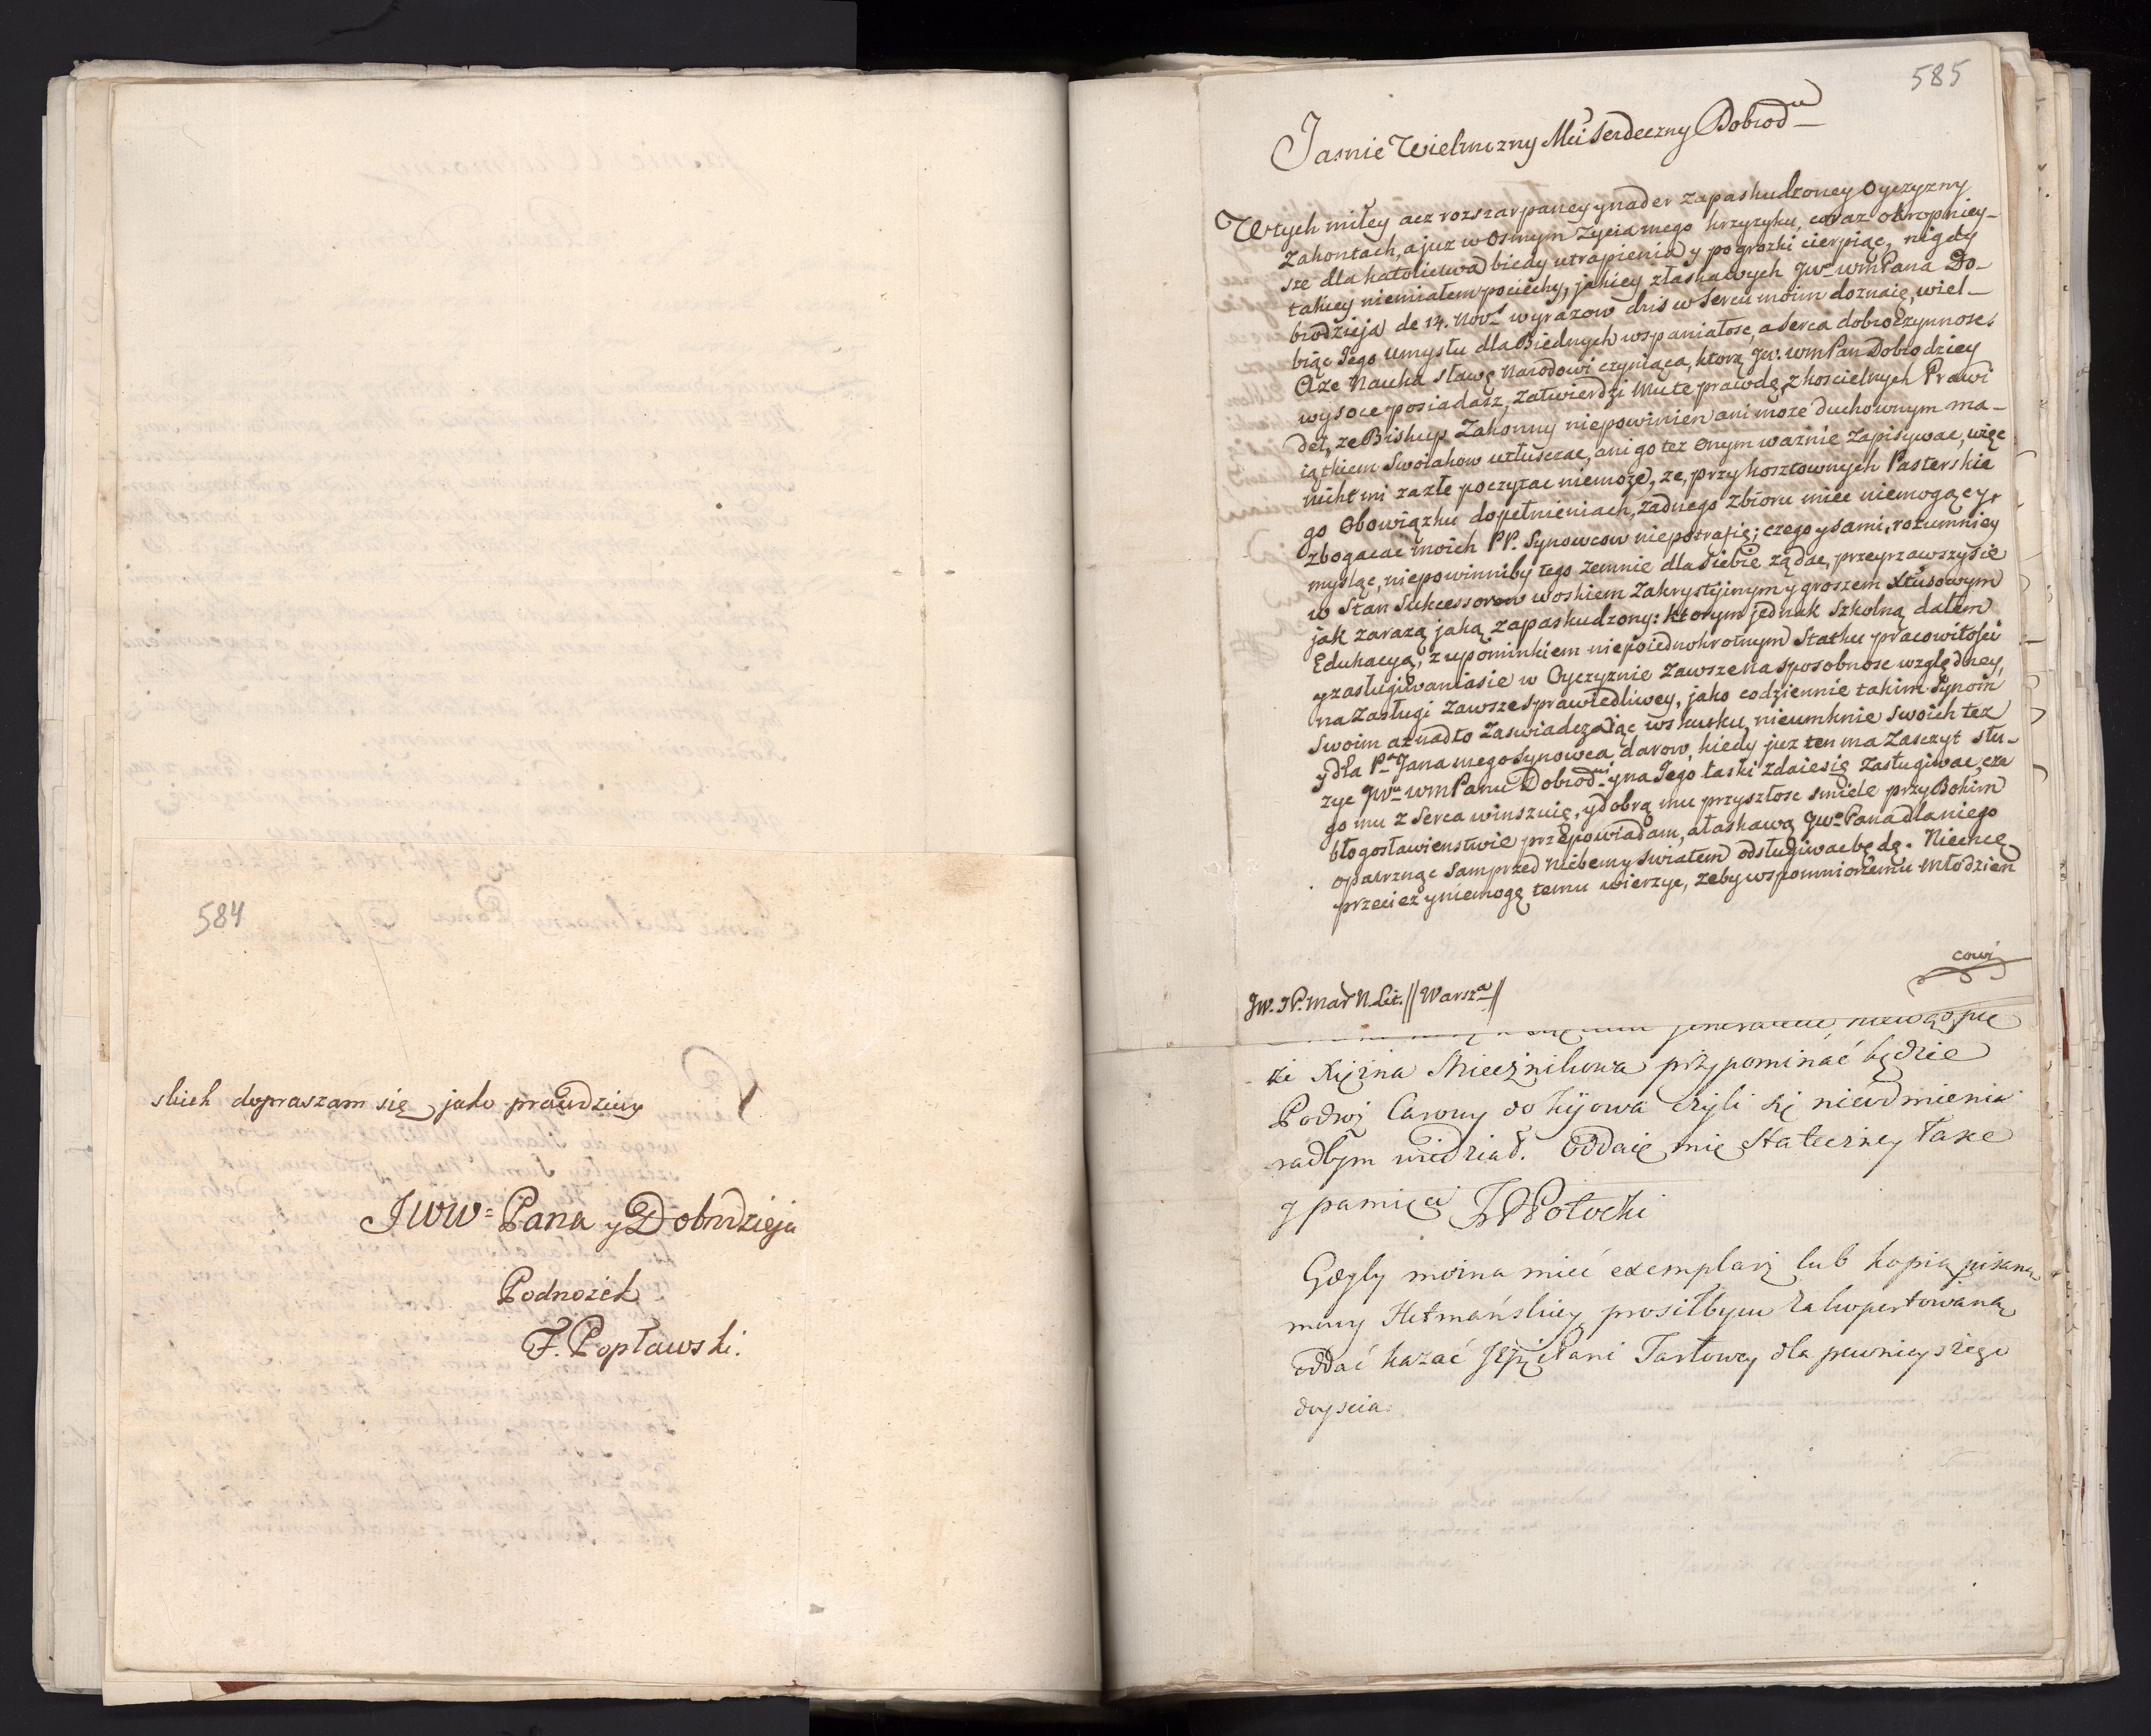 584
skich dopraszam się jako prawdziwy
JWW= Pana y Dobrodzieja
Podnożek
F. Popławski.
585
Jasnie Wielmozny Mci Serdeczny Dobrod
Wtych miłey acz rozszarpaney y nader zapaskudzoney Oyczyzny
Zakontach, a juz w osmym zycia mego krzyzyku, coraz okropniey-
sze dla katolictwa biedy utrapienia y pogrozki cierpiąc, nigdy
takiey niemiałem pociechy, jakiey złaskawych Jwo wm Pana Do-
brodzieja de 14. Novr wyrazow dzis w Sercu moim doznaię, wiel-
biąc Jego Umysłu dla Biednych wspaniałosc, a Serca dobroczynnosc.
Aze Nauka sławę Narodowi czyniąca, ktorą Jw. wm Pan Dobrodziey
wysoce posiadasz, zatwierdzi Mu te prawdę z koscielnych Prawi
deł, ze Biskup Zakonny niepowinien ani moze duchownym ma-
iątkiem Swoiakow utłuszczac, ani go tez onym waznie zapisywac, więc
nikt mi zazłe poczytac niemoze, ze, przy kosztownych Pasterskie
go Obowiązku dopełnieniach, zadnego zbioru miec niemogący,
zbogacac moich PP. Synowcow niepotrafię; czego y sami, rozumniey
mysląc, niepowinniby tego zemnie dla siebie ządac, przeyrzawszy się
w Stan Sukcessorow woskiem Zakrystyinym y groszem Xtusowym
jak zarazą jaką zapaskudzony: ktorym jednak szkolną dałem
Edukacyą, z upominkiem niepoiednokrotnym Statku pracowitości
y zasługiwaniasie w Oyczyznie Zawsze na sposobnosc względney,
na Zasługi zawsze sprawiedliwey, jako codziennie takim Synom
Swoim aż nadto Zaswiadczaiąc wskutku, nieumknie Swoich tez
y dla Pa Jana mego Synowca darow, kiedy juz ten ma Zaszczyt słu-
zyc Jwu wm Panu Dobrod y na Jego łaski zdaie się zasługiwac, cze
go mu z Serca winszuię, y dobrą mu przyszłosc smiele przy Boskim
błogosławienstwie przepowiadam, a łaskawą Jwo Pana dla niego
opatrznąc Sam przed Niebem y swiatem odsługiwac będę. Niechcę
przeciez y niemogę temu wierzyc, zeby wspomnionemu Młodzien
cowi
Jw. JP. Mar N. Lit. // Warsza //
ze Xiężna Miecznikowa przypominać będzie
Podroż Carowy do Kijowa czyli się nieodmienia
radbym wiedział. Oddaię mię Stateczney łasce
y pamięci Potocki
Gdyby można mieć exemplarz lub kopią pisaną
mowy Hetmańskiey prosiłbym zakopertowaną
oddać kazać Pani Tarłowey dla pewnieyszego
doyscia.